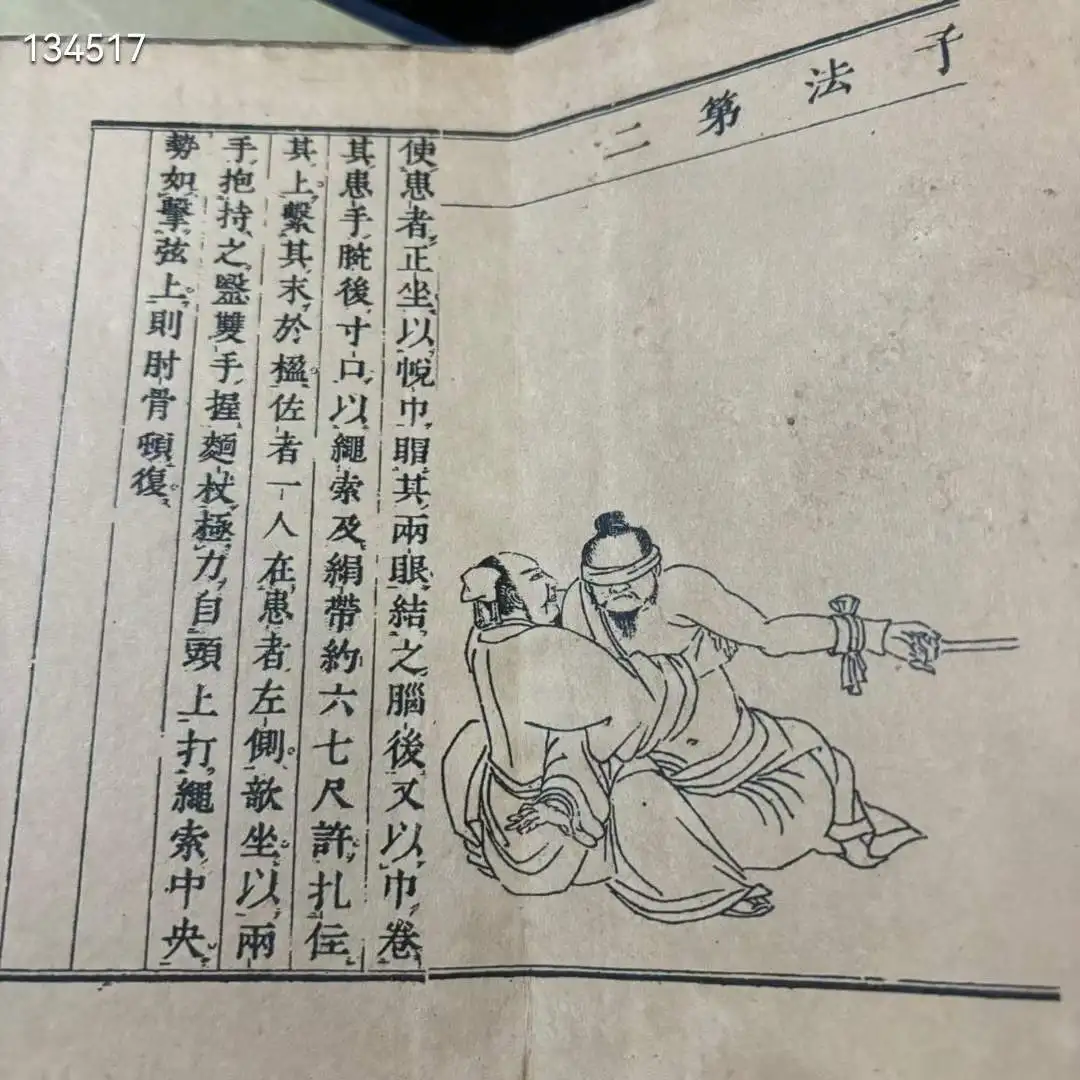 134517
子法第二
使患者正坐以帨巾眀其兩眼結之腦後又以巾卷
其患手腕後寸口以繩索及絹帶約六七尺許扎住
其上繫其末於楹佐者一人在患者左側欹坐以兩
手抱持之醫雙手握麵杖極力自頭上打繩索中央
勢如擊弦上則肘骨頓復